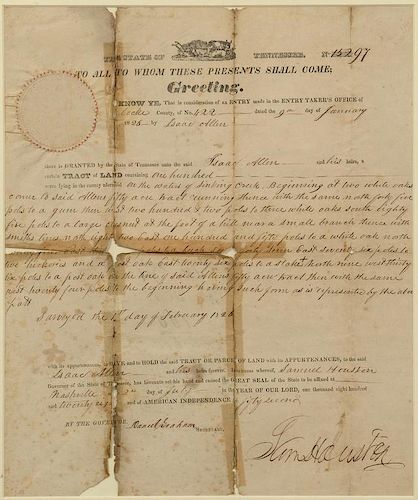 THE STATE OF TENNESSEE. No 15297
TO ALL TO WHOM THESE PRESENTS SHALL COME;
Greeting.
KNOW YE, That in consideration of an ENTRY made in the ENTRY TAKER'S OFFICE of
Cocke County, of No. 422 dated the 9th day of January
1826 by Isaac Allen
there is GRANTED by the State of Tennessee unto the said Isaac Allen and his heirs, a
certain TRACT of LAND containing One hundred
acres lying in the county aforesaid On the waters of Sinking Creek. Beginning at two white oaks
corner to said Allens fifty acre tract running thence with the same north forty five
poles to a gum then west two hundred & two poles to three white oaks south eighty
five poles to a large chesnut at the foot of a hill near a small branch then with
Smiths lines
two hickories and a post oak east twenty six poles to a stake North nine west thirty
six poles to a post oak on the line of said Allens fifty acre tract then with the same
east twenty four poles to the beginning having such form as is represented by the above
platt
Surveyed the 1st day of February 1826
with its appurtenances, to HAVE and to HOLD the said TRACT OR PARCEL OF LAND with its APPURTENANCES, to the said
Isaac Allen and his heirs forever. In witness whereof, Samuel Houston
Governor of the State of Tennessee, has hereunto set his hand and caused the GREAT SEAL of the State to be affixed at
Nashville day of July in the YEAR OF OUR LORD, one thousand eight hundred
and twenty and of AMERICAN INDEPENDENCE the fifty second
BY THE GOVERNOR, Daniel Graham
SECRETARY.
Sam Houston